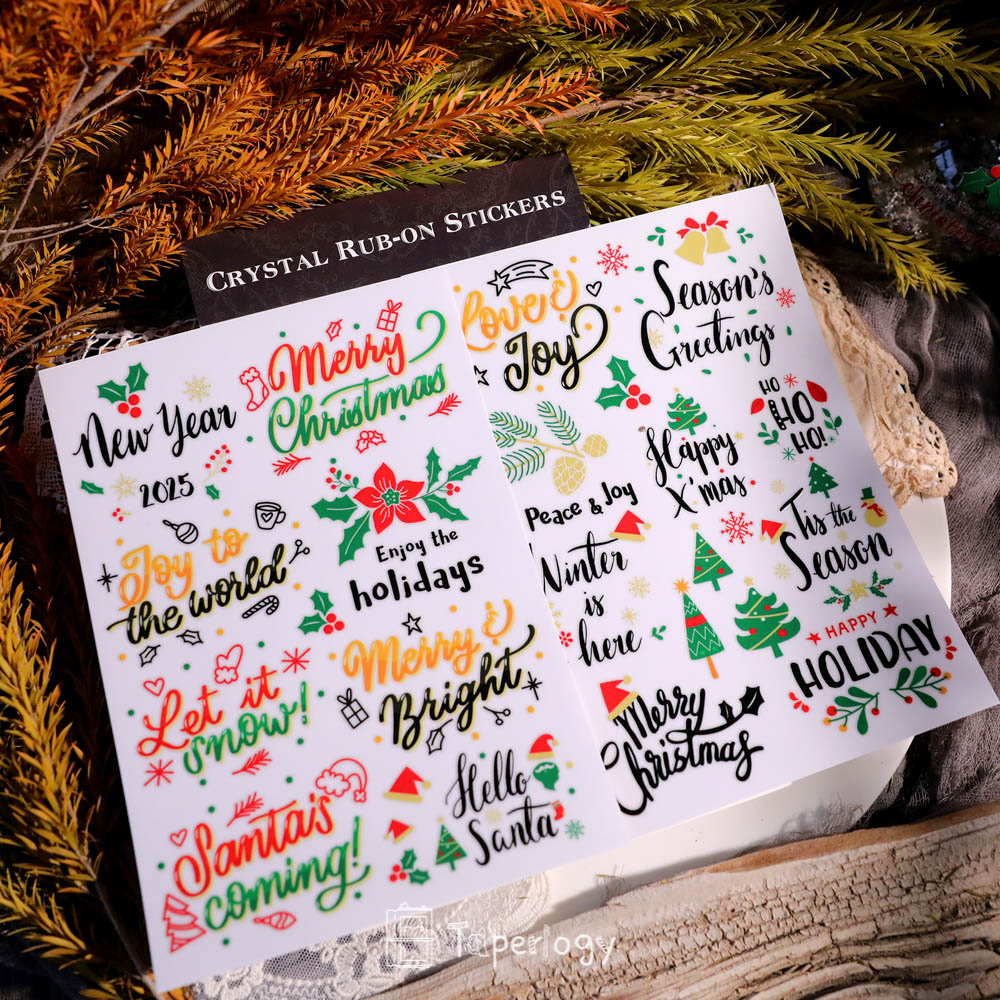 CRYSTAL RUB-ON STICKERS
New Year
2025
Merry
Christmas
Joy to
the world
Enjoy the
holidays
Let it
snow!
Merry &
Bright
Santa's
coming!
Hello
Santa
Love &
Joy
Season's
Greetings
HO
HO
HO!
Peace & Joy
Happy
X'mas
Winter
is
here
Tis the
Season
Merry
Christmas
HAPPY
HOLIDAY
Taperlogy